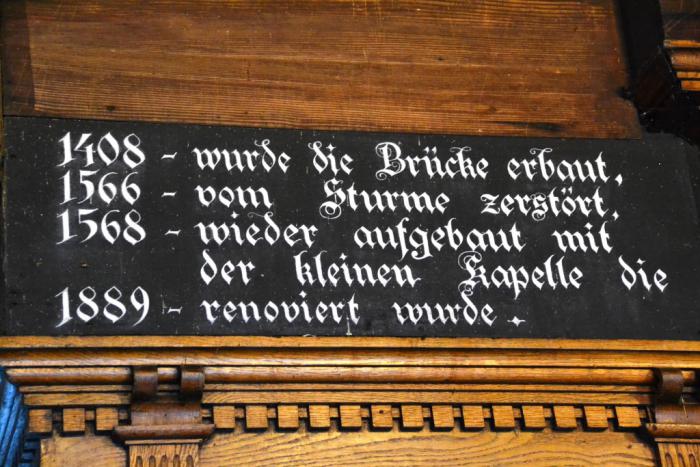 1408 - wurde die Brücke erbaut,
1566 - vom Sturme zerstört,
1568 - wieder aufgebaut mit
der kleinen Kapelle die
1889 - renoviert wurde.